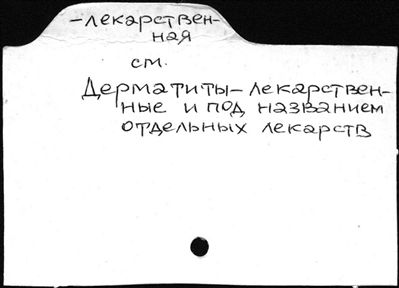 -лекарствен-
ная
см.
Дерматиты- лекарствен-
ные и под названием
отдельных лекарств